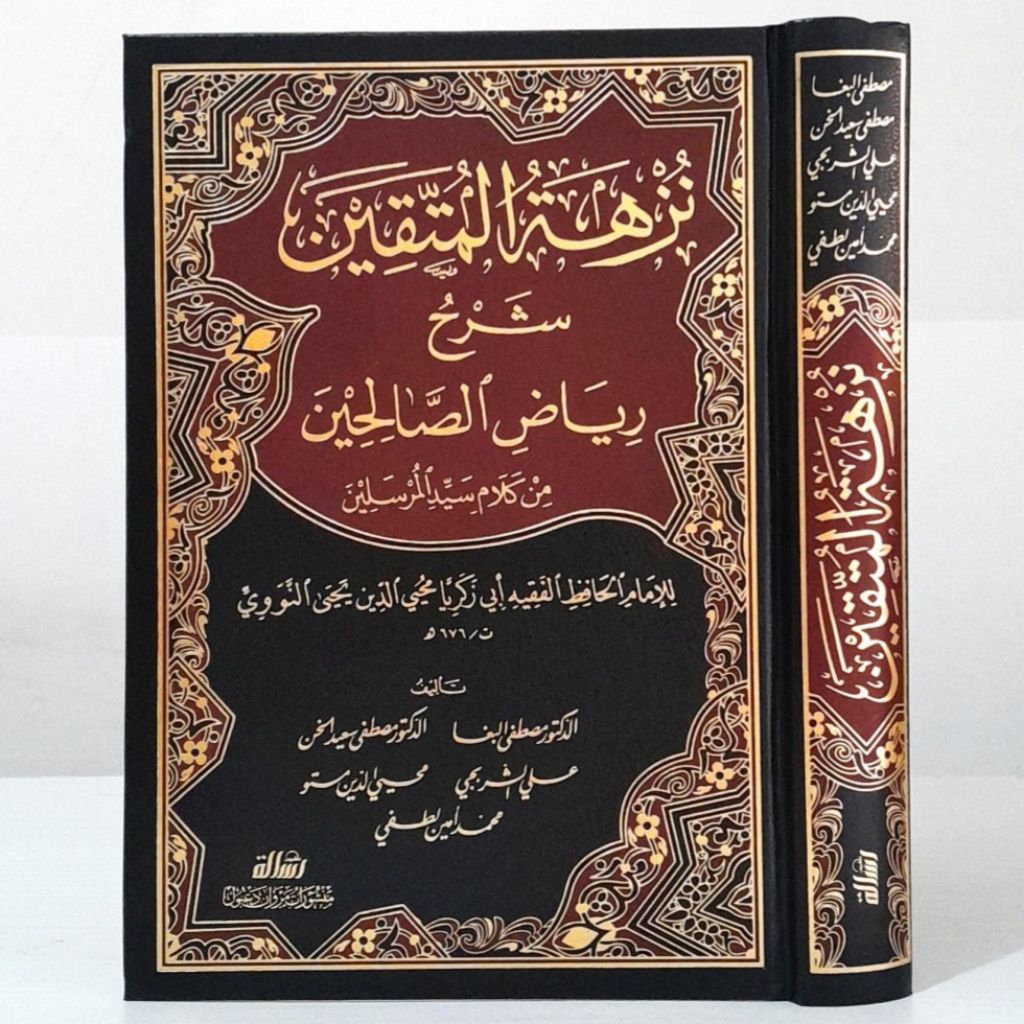 نُزْهَةُ المُتَّقِيْنَ
شَرْحُ
رِيَاضِ الصَّالِحِيْنَ
مِنْ كَلَامِ سَيِّدِ المُرْسَلِيْنَ
لِلإِمَامِ الحَافِظِ الفَقِيهِ أَبِي زَكَرِيَّا مُحْيِي الدِّين يَحْيَى النَّوَوِيِّ
ت/٦٧٦هـ
تأليف
الدكتور مصطفى البغا الدكتور مصطفى سعيد الخن
علي الشربجي محيي الدين مستو
محمد أمين لطفي
رسالة
منشورات مروان دعبول
مصطفى البغا
مصطفى سعيد الخن
علي الشربجي
محيي الدين مستو
محمد أمين لطفي
نزهة المتقين
رسالة